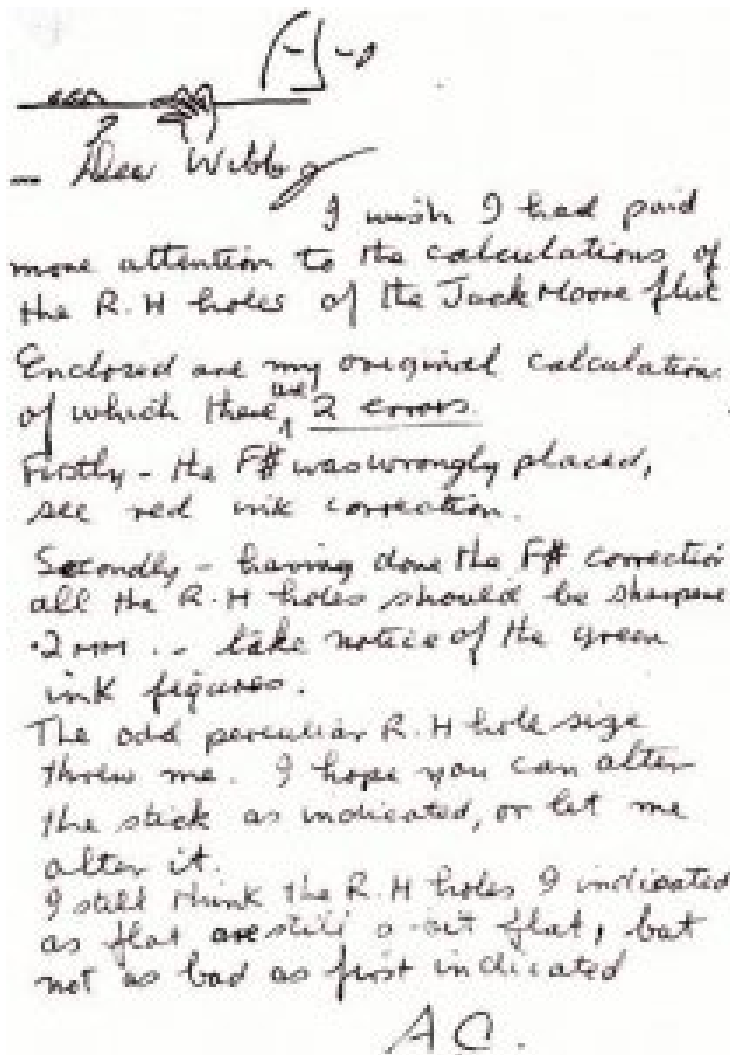 - Dear Wibb
I wish I had paid
more attention to the calculations of
the R.H holes of the Jack Moore flute
Enclosed are my original calculations
of which there are 2 errors.
Firstly - the F# was wrongly placed,
see red ink correction.
Secondly - having done the F# correction
all the R.H holes should be sharpene
.2 MM .. take notice of the green
ink figures.
The odd perculiar R.H hole size
threw me. I hope you can alter
the stick as indicated, or let me
alter it.
I still think the R.H holes I indicated
as flat are still a bit flat, but
not as bad as first indicated
AC.